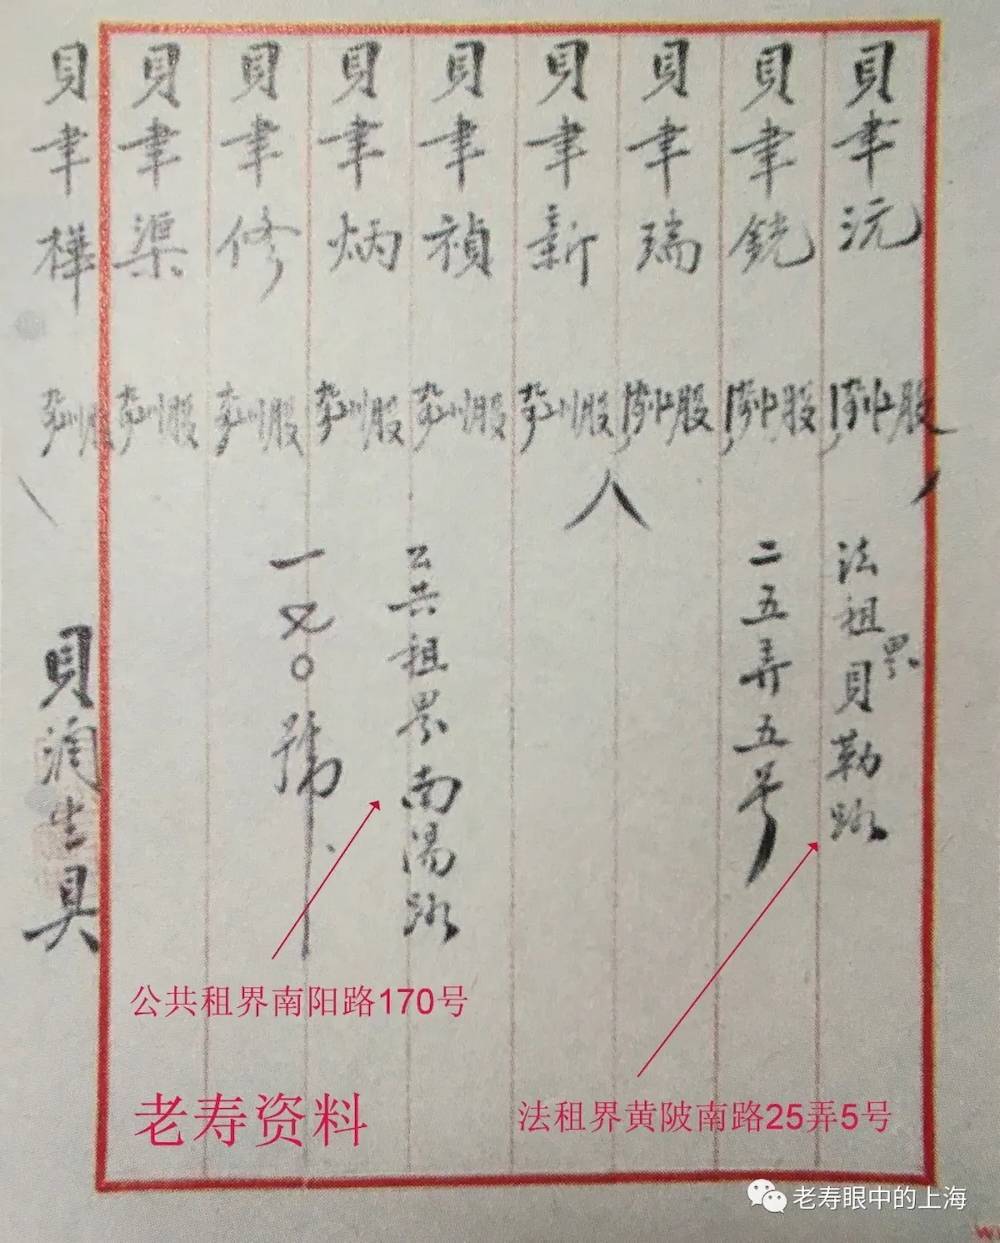 貝聿沅 股
貝聿銑 股
貝聿瑞 股
貝聿新 股
貝聿禎 股
貝聿炳 股
貝聿修 股
貝聿渠 股
貝聿樺 股
法租界貝勒路
二五弄五号
公共租界南陽路
一七〇號
貝潤生具
公共租界南阳路170号
法租界黄陂南路25弄5号
老寿资料
老寿眼中的上海